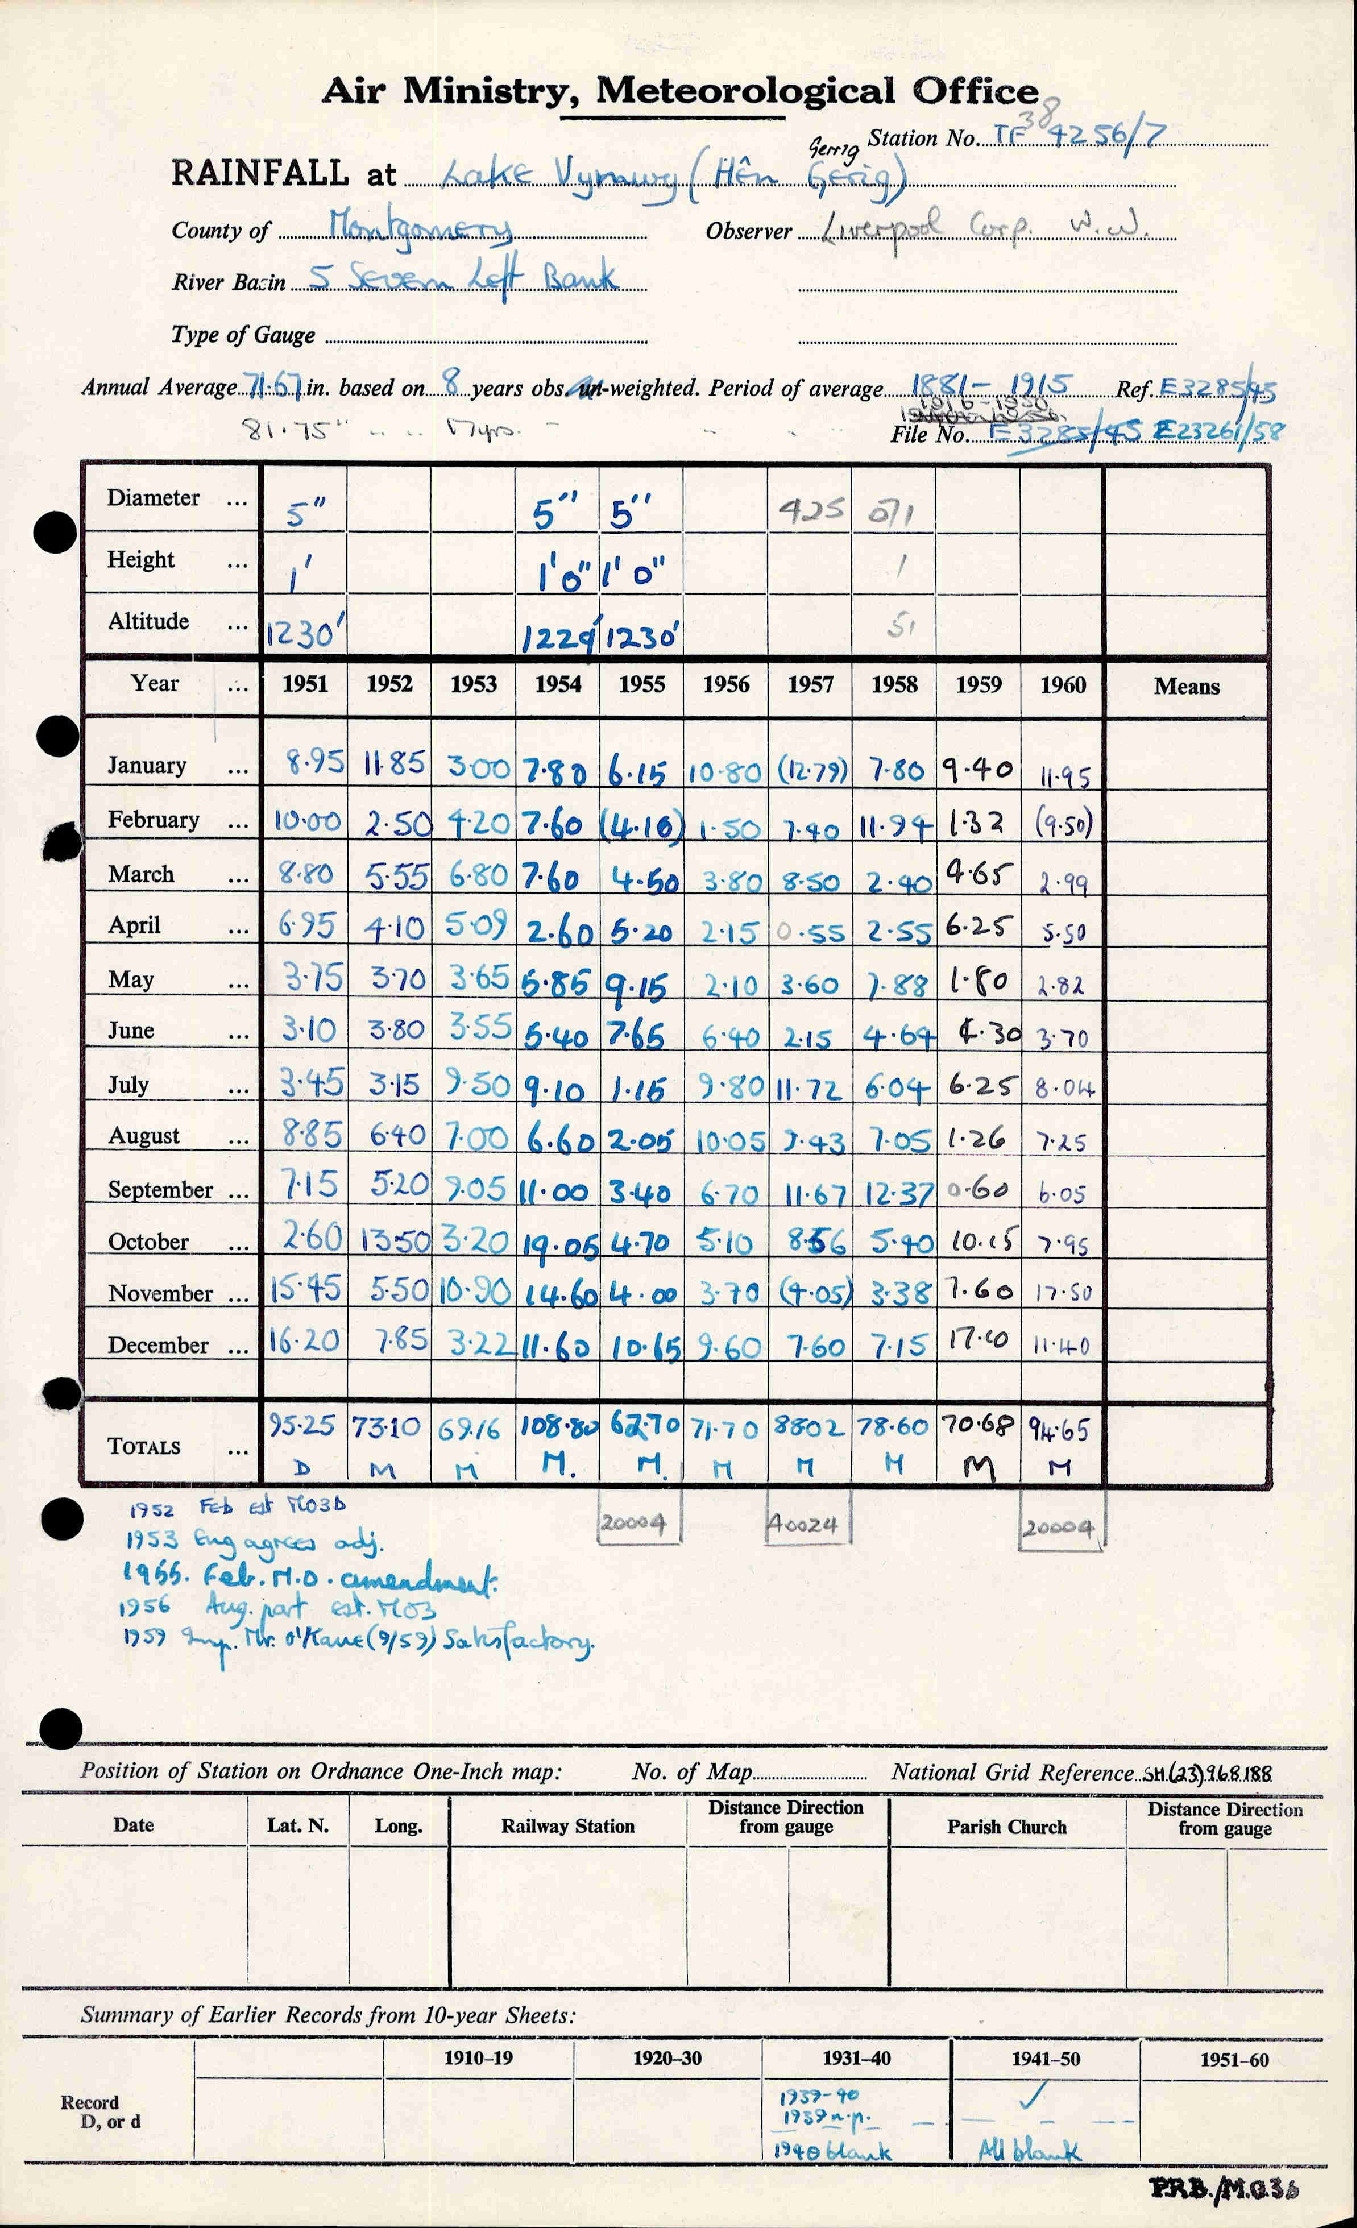 Air Ministry, Meteorological Office
38
Gerrig Station No. TF 4256/7
RAINFALL at Lake Vyrnwy (Hên Gerig)
County of Montgomery Observer Liverpool Corp. W.W.
River Basin 5 Severn Left Bank
Type of Gauge
Annual Average 71.67 in. based on 8 years obs. un-weighted. Period of average 1881-1915 Ref. E3285/45
1916-1950
81.75" " " 17yrs. File No. E3285/45 E23261/58
Diameter ... 5" 5" 5" 425 571
Height ... 1' 1'0" 1'0" 1
Altitude ... 1230' 1229' 1230' 51
Year ... 1951 1952 1953 1954 1955 1956 1957 1958 1959 1960 Means
January ... 8.95 11.85 3.00 7.80 6.15 10.80 (12.79) 7.80 9.40 11.95
February ... 10.00 2.50 4.20 7.60 (4.10) 1.50 7.40 11.94 1.32 (9.50)
March ... 8.80 5.55 6.80 7.60 4.50 3.80 8.50 2.40 4.65 2.99
April ... 6.95 4.10 5.09 2.60 5.20 2.15 0.55 2.55 6.25 5.50
May ... 3.75 3.70 3.65 5.85 9.15 2.10 3.60 7.88 1.80 2.82
June ... 3.10 3.80 3.55 5.40 7.65 6.40 2.15 4.64 4.30 3.70
July ... 3.45 3.15 9.50 9.10 1.15 9.80 11.72 6.04 6.25 8.04
August ... 8.85 6.40 7.00 6.60 2.05 10.05 9.43 7.05 1.26 7.25
September ... 7.15 5.20 9.05 11.00 3.40 6.70 11.67 12.37 0.60 6.05
October ... 2.60 13.50 3.20 19.05 4.70 5.10 8.56 5.40 10.15 7.95
November ... 15.45 5.50 10.90 14.60 4.00 3.70 (4.05) 3.38 7.60 17.50
December ... 16.20 7.85 3.22 11.60 10.65 9.60 7.60 7.15 17.10 11.40
TOTALS ... 95.25 73.10 69.16 108.80 62.70 71.70 88.02 78.60 70.68 94.65
D M M M. M. M M M M M
20004 A0024 20004
1952 Feb est MO3b
1953 Eng agrees adj.
1955. Feb. M.O. amendment.
1956 Aug. part est. MO3
1959 Insp. Mr. O'Kane (9/59) Satisfactory.
Position of Station on Ordnance One-Inch map: No. of Map National Grid Reference SH(23)968188
Date Lat. N. Long. Railway Station Distance Direction from gauge Parish Church Distance Direction from gauge
Summary of Earlier Records from 10-year Sheets:
1910–19 1920–30 1931–40 1941–50 1951–60
Record
D, or d
1939-40 ✓
1939 n.p.
1940 blank All blank
P.R.B./M.O.3b